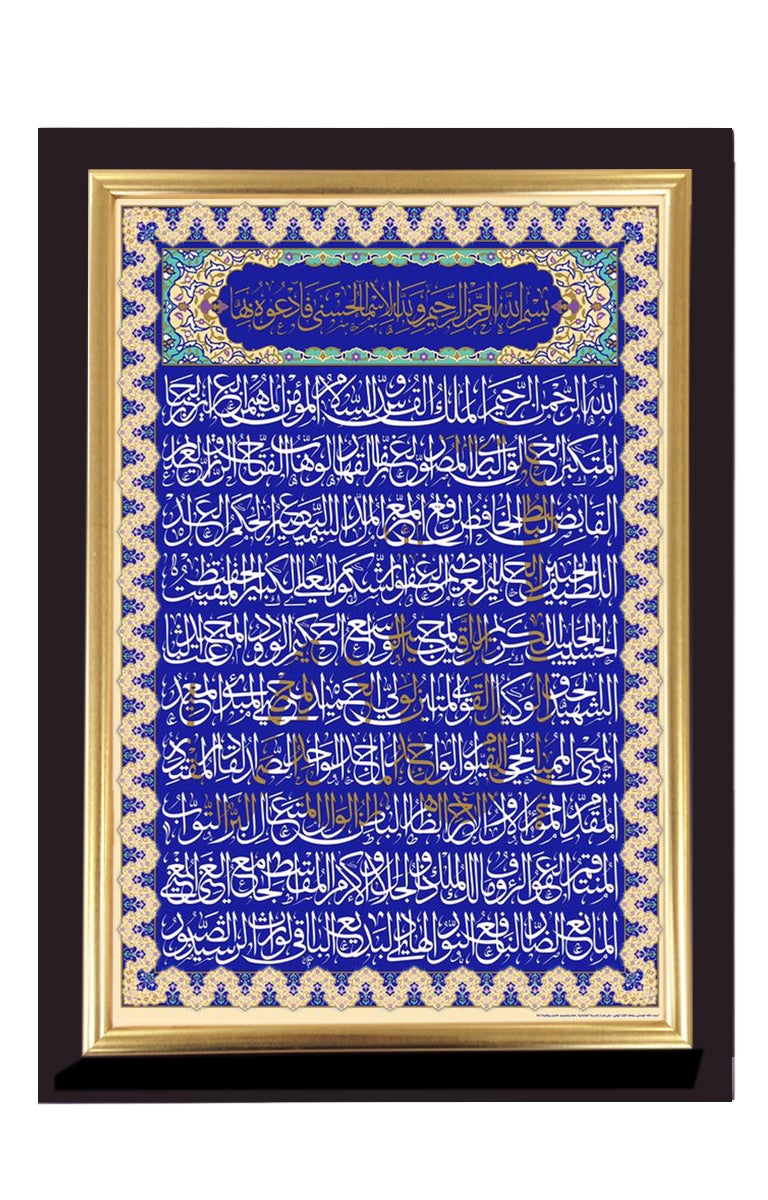 بسم الله الرحمن الرحيم ولله الأسماء الحسنى فادعوه بها
الله الرحمن الرحيم الملك القدوس السلام المؤمن المهيمن العزيز الجبار
المتكبر الخالق البارئ المصور الغفار القهار الوهاب الفتاح الرزاق العليم
القابض الباسط الخافض الرافع المعز المذل السميع البصير الحكم العدل
اللطيف الخبير الحليم العظيم الغفور الشكور العلي الكبير الحفيظ المقيت
الحسيب الجليل الكريم الرقيب المجيب الواسع الحكيم الودود المجيد الباعث
الشهيد الحق الوكيل القوي المتين الولي الحميد المحصي المبدئ المعيد
المحيي المميت الحي القيوم الواجد الماجد الواحد الصمد القادر المقتدر
المقدم المؤخر الأول الآخر الظاهر الباطن الوالي المتعال البر التواب
المنتقم العفو الرؤوف مالك الملك ذو الجلال والإكرام المقسط الجامع الغني المغني
المانع الضار النافع النور الهادي البديع الباقي الوارث الرشيد الصبور